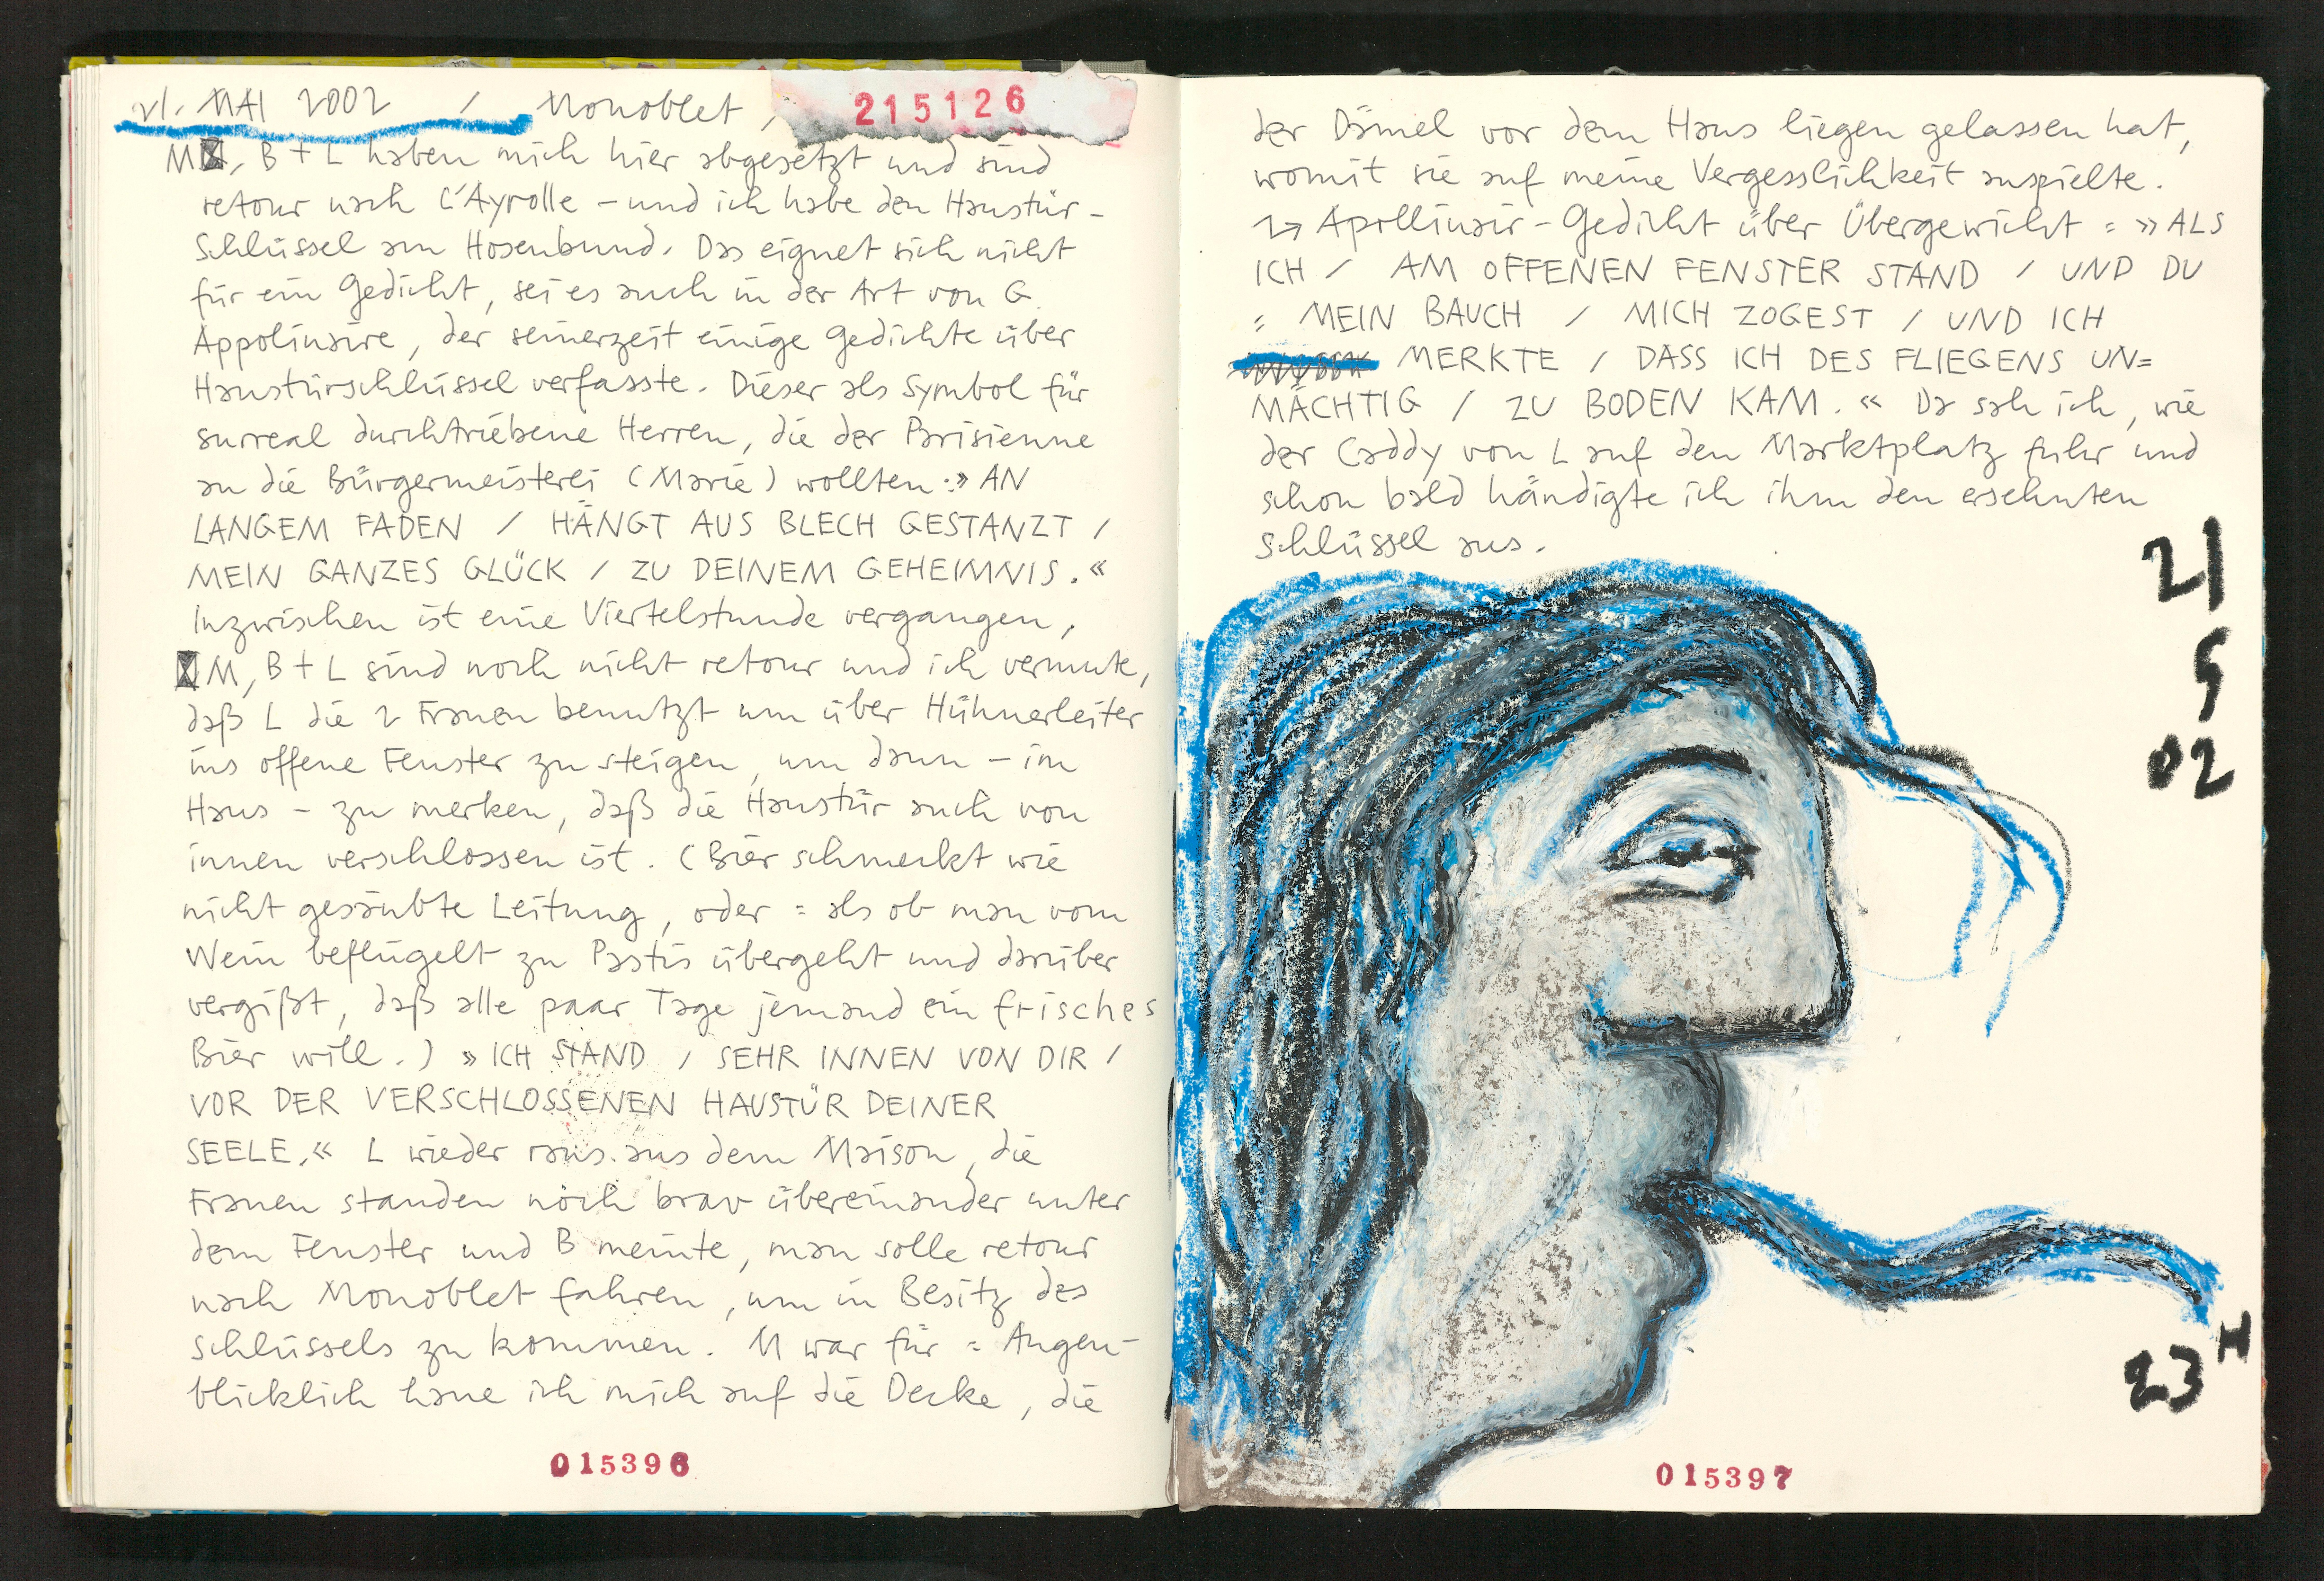 21. MAI 2002 / Monoblet,
215126
M, B + L haben mich hier abgesetzt und sind
retour nach L'Ayrolle – und ich habe den Haustür-
schlüssel am Hosenbund. Das eignet sich nicht
für ein Gedicht, sei es auch in der Art von G.
Appolinaire, der seinerzeit einige Gedichte über
Haustürschlüssel verfasste. Dieser als Symbol für
surreal durchtriebene Herren, die der Parisienne
an die Bürgermeisterei (Marie) wollten: »AN
LANGEM FADEN / HÄNGT AUS BLECH GESTANZT /
MEIN GANZES GLÜCK / ZU DEINEM GEHEIMNIS.«
Inzwischen ist eine Viertelstunde vergangen,
M, B + L sind noch nicht retour und ich vermute,
daß L die 2 Frauen benutzt um über Hühnerleiter
ins offene Fenster zu steigen, um dann – im
Haus – zu merken, daß die Haustür auch von
innen verschlossen ist. (Bier schmeckt wie
nicht gesäubte Leitung, oder = als ob man vom
Wein beflügelt zu Pastis übergeht und darüber
vergißt, daß alle paar Tage jemand ein frisches
Bier will.) »ICH STAND / SEHR INNEN VON DIR /
VOR DER VERSCHLOSSENEN HAUSTÜR DEINER
SEELE.« L wieder raus aus dem Maison, die
Frauen standen noch brav übereinander unter
dem Fenster und B meinte, man solle retour
nach Monoblet fahren, um in Besitz des
Schlüssels zu kommen. M war für = Augen-
blicklich haue ich mich auf die Decke, die
015396
der Dämel vor dem Haus liegen gelassen hat,
womit sie auf meine Vergesslichkeit anspielte.
Apollinair-Gedicht über Übergewicht = »ALS
ICH / AM OFFENEN FENSTER STAND / UND DU
= MEIN BAUCH / MICH ZOGEST / UND ICH
MERKTE / DASS ICH DES FLIEGENS UN=
MÄCHTIG / ZU BODEN KAM.« Da sah ich, wie
der Caddy von L auf den Marktplatz fuhr und
schon bald händigte ich ihm den ersehnten
Schlüssel aus.
21
5
02
23 H
015397